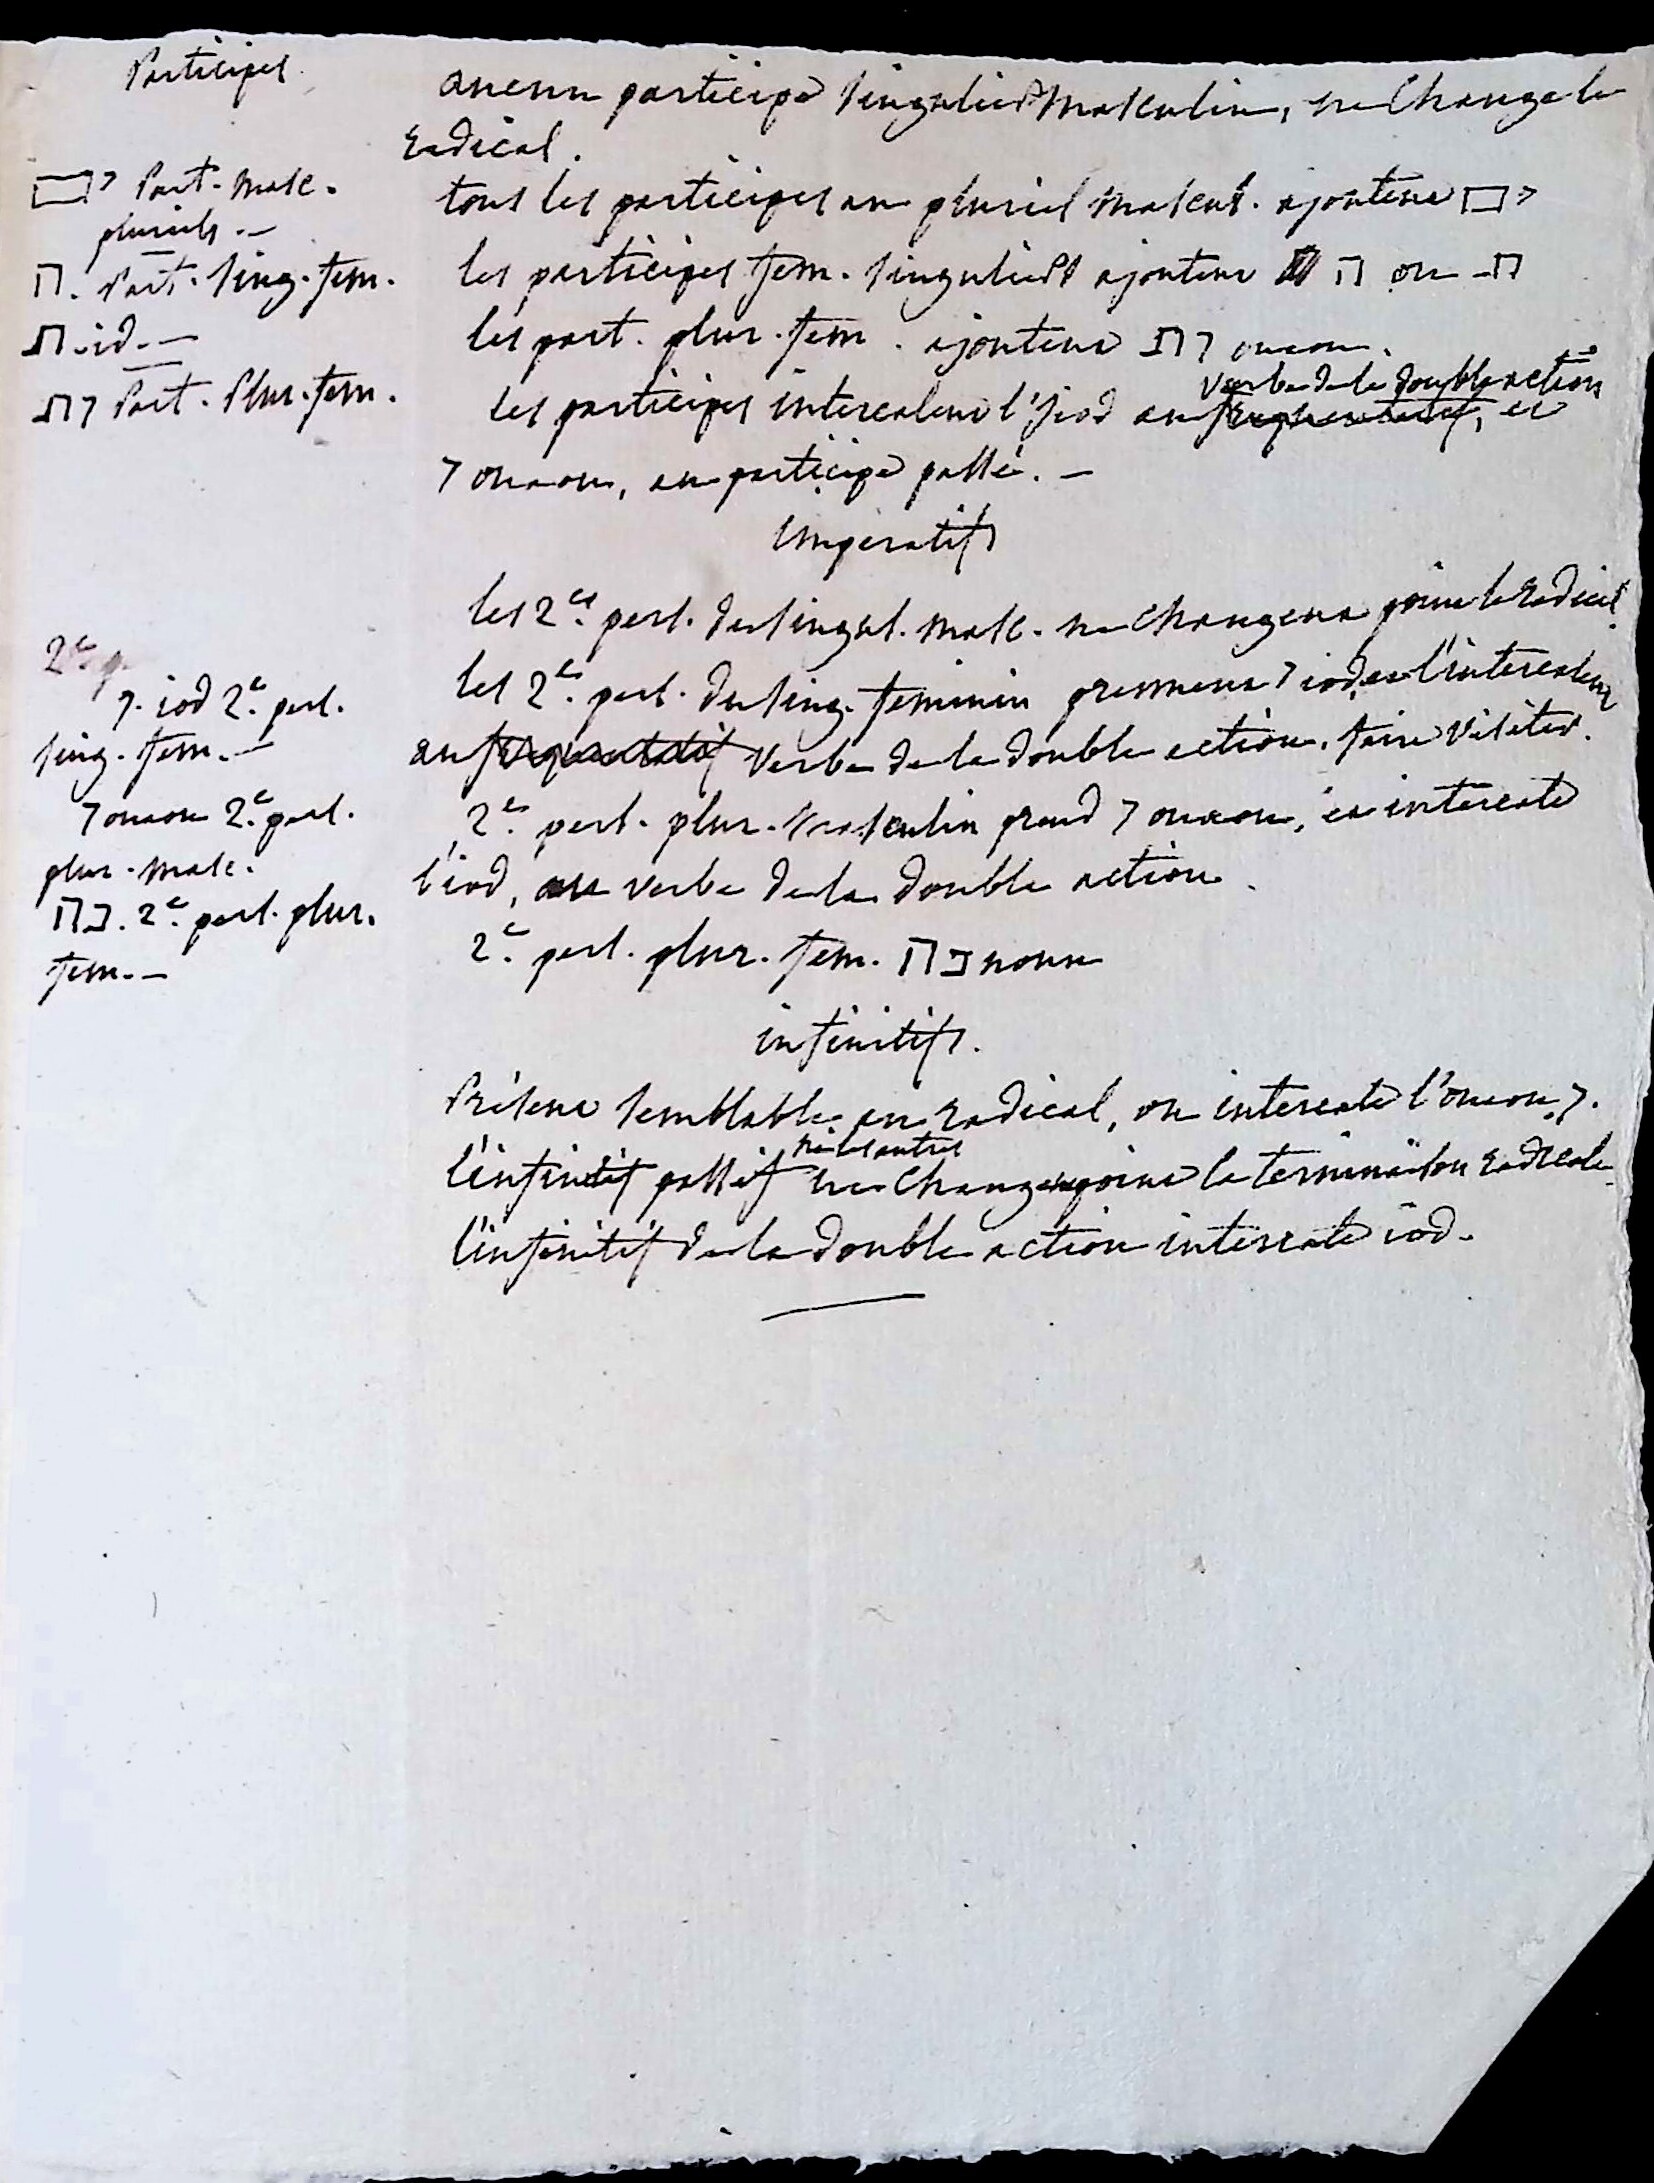 Participes
ם י Part. masc.
pluriels. —
ה. Part. sing. fem.
ת. id. —
ת ו Part. Plur. fem.
2e p.
י. iod 2e. pers.
sing. fem. —
ו ouaou 2e. pers.
plur. masc.
ה נ. 2e. pers. plur.
fem. —
aucun participe singulier masculin, ne change le
radical.
tous les participes au pluriel mascul. ajoutent ם י
les participes fem. singuliers ajoutent ה ou ת
les part. plur. fem. ajoutent ת ו ouaou.
les participes intercalent l'iod au frequentatif, verbe de la double action et
ו ouaou, au participe passé. —
imperatifs
les 2es. pers. du singul. masc. ne changent point le radical.
les 2es. pers. du sing. feminin prennent י iod, et l'intercalent
au frequentatif verbe de la double action, faire visiter.
2es. pers. plur. masculin prend ו ouaou, et intercale
l'iod, au verbe de la double action.
2e. pers. plur. fem. ה נ noun
infinitifs.
Présent semblable au radical, on intercale l'ouaou, ו.
l'infinitif passif ni les autres ne changent point la terminaison radicale.
l'infinitif de la double action intercale iod.